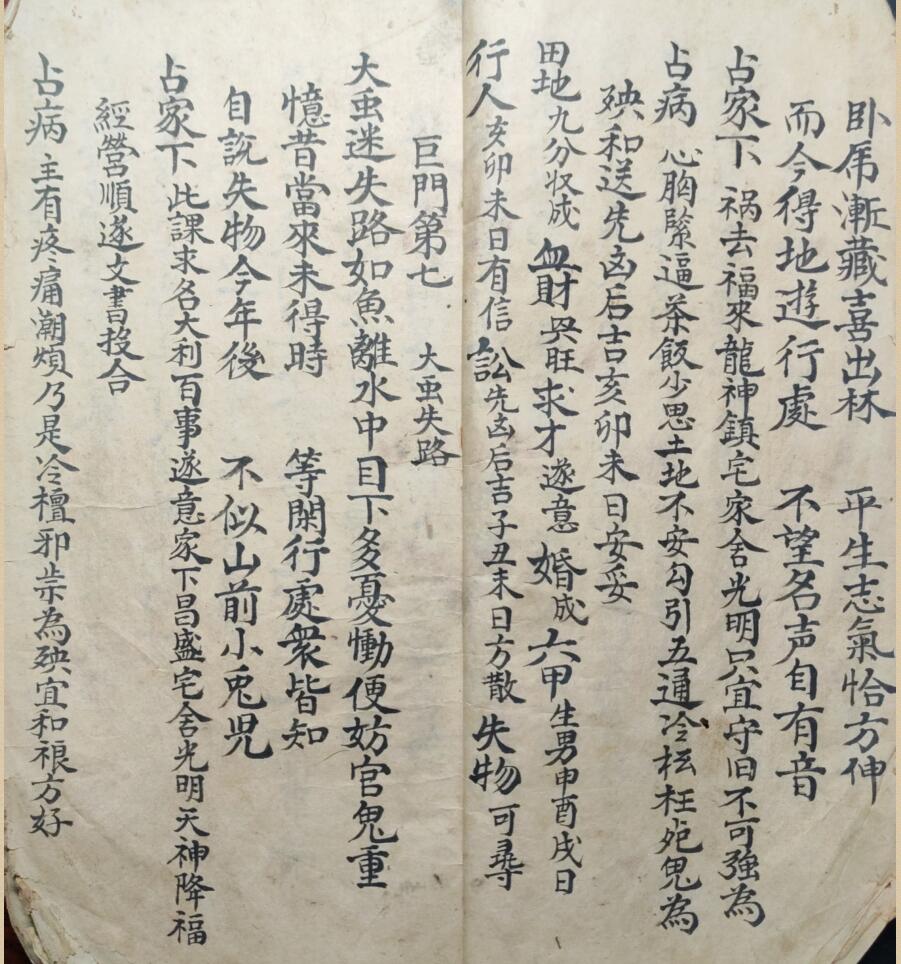 卧虎漸藏喜出林 平生志氣恰方伸
而今得地遊行處 不望名声自有音
占家下 祸去福來龍神鎮宅家舍光明只宜守旧不可強為
占病 心胸緊逼茶飯少思土地不安勾引五通冷坛枉死鬼為
殃和送先凶后吉亥卯未日安妥
田地九分収成 血財興旺求才遂意 婚成 六甲生男申酉戌日
行人亥卯未日有信 訟先凶后吉子丑未日方散 失物可尋
巨門第七 大虫失路
大虫迷失路如魚離水中目下多憂慟便妨官鬼重
憶昔當來未得時 等閑行處衆皆知
自説失物今年後 不似山前小兎児
占家下 此課求名大利百事遂意家下昌盛宅舍光明天神降福
經營順遂文書投合
占病 主有疼痛潮煩乃是冷檀邪祟為殃宜和禳方好